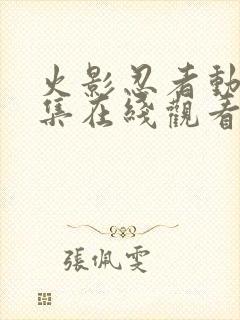 火影忍者動
集在綫觀看
張佩雯